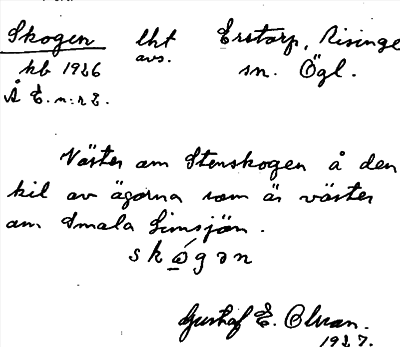 Skogen lht Erstorp, Risinge
avs.
hb 1926 sn. Ögl.
Å E. n:r 2.
Väster om Stenskogen å den
kil av ägorna som är väster
om Smala Simsjön.
skógən
Gustaf E. Olsson.
1927.